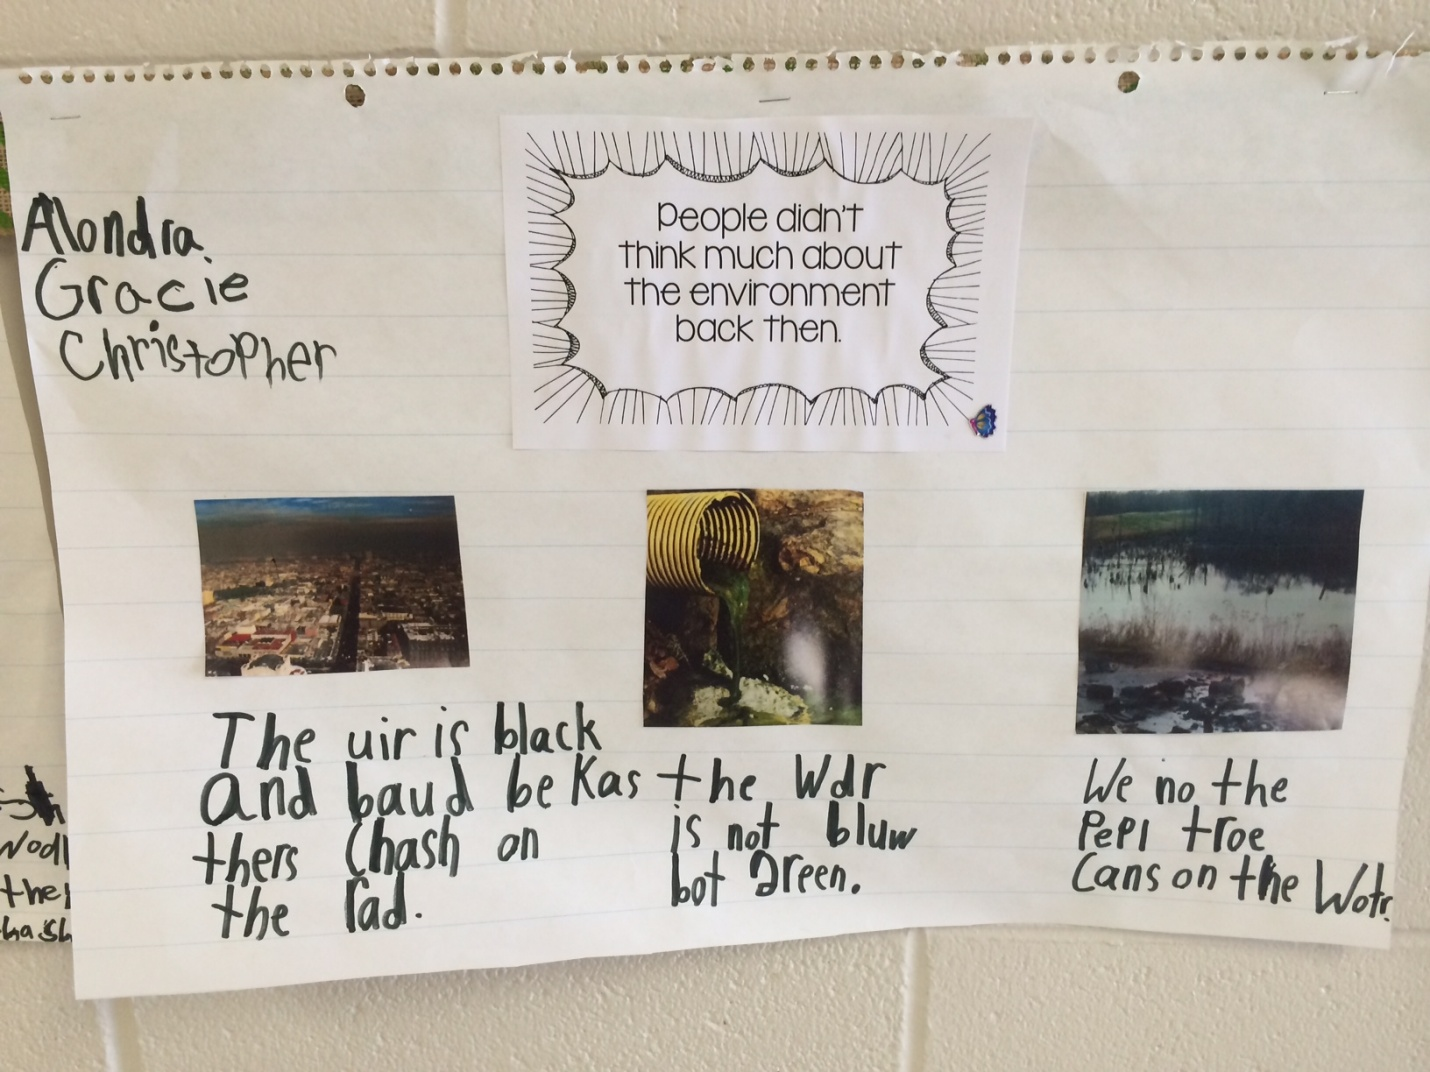 Alondra
Gracie
Christopher
People didn't
think much about
the environment
back then.
The uir is black
and baud be kas
thers Chash on
the rad.
the Wdr
is not bluw
bot green.
We no the
PePl troe
Cans on the Wotr.
the